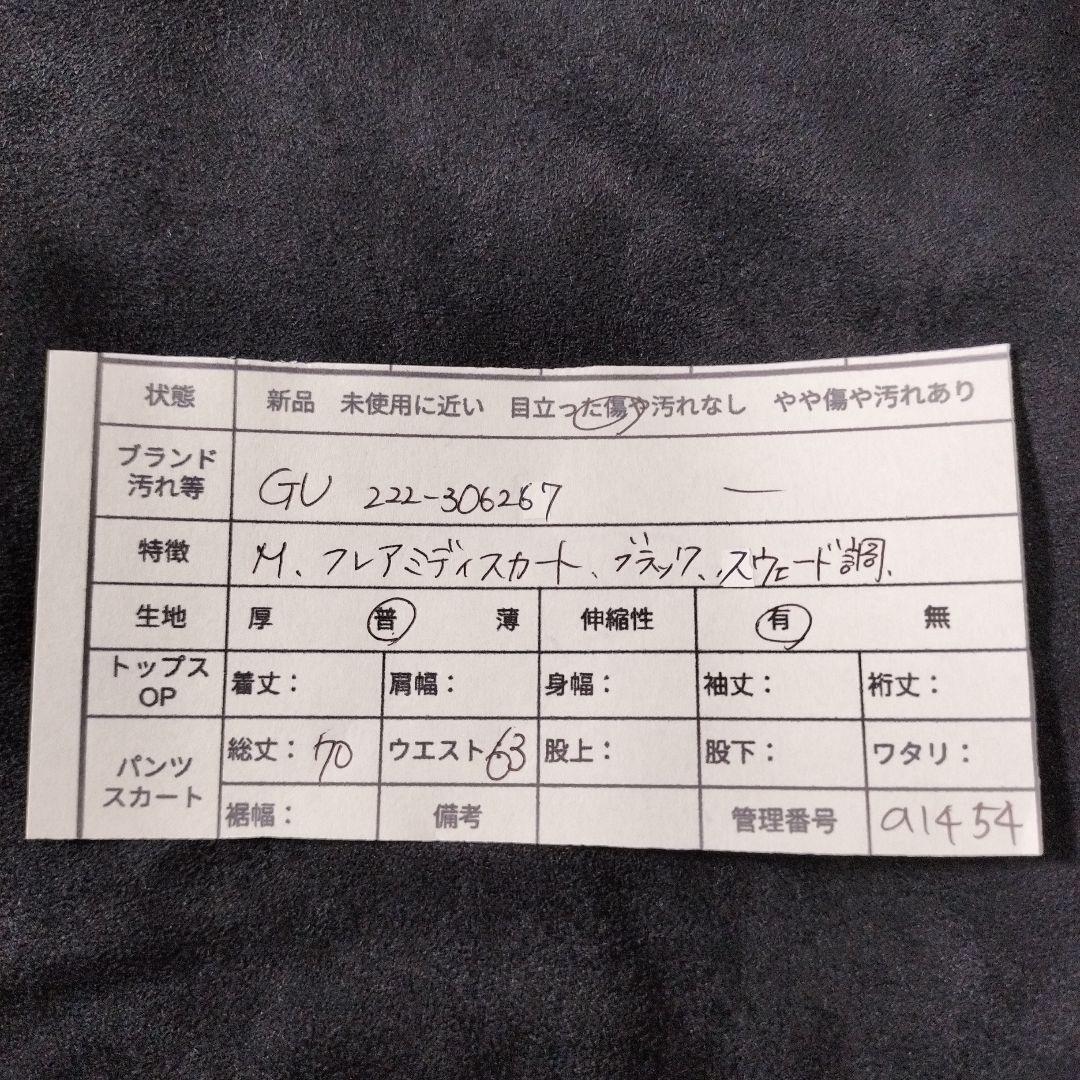 状態 新品 未使用に近い 目立った傷や汚れなし やや傷や汚れあり
ブランド
汚れ等
GU 222-306267 ー
特徴 M、フレアミディスカート、ブラック、スウェード調、
生地 厚 普 薄 伸縮性 有 無
トップス
OP
着丈: 肩幅: 身幅: 袖丈: 裄丈:
パンツ
スカート
総丈: 70 ウエスト 63 股上: 股下: ワタリ:
裾幅: 備考 管理番号 a1454